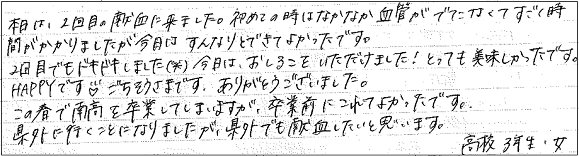 今日は、2回目の献血に来ました。初めての時はなかなか血管がでてこなくてすごく時
間がかかりましたが今日はすんなりとできてよかったです。
2回目でもドキドキしました(笑) 今日は、おしるこをいただけました！とっても美味しかったです。
HAPPYです♡ごちそうさまです。ありがとうございました。
この春で南高を卒業してしまいますが、卒業前にこれてよかったです。
県外に行くことになりましたが、県外でも献血したいと思います。
高校3年生・女